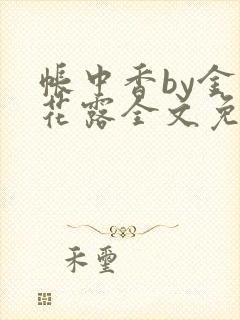 帐中香by金
花露全文免
禾玺